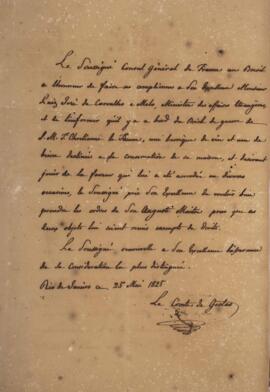 Le Soussigné Consul Général de France au Brésil
a l'honneur de faire ses complimens a Son Excellence Monsieur
Luiz José de Carvalho e Mello, Ministre des affaires Etrangères,
et de l'informer qu'il y a a bord du Brick de guerre de
S. M. T. Chrétienne le une barrique de vin et une de
bierre destinées a la consommation de sa maison, et désirant
jouir de la faveur qui lui a été accordée en diverses
occasions, le Soussigné prie Son Excellence de vouloir bien
prendre les ordres de Son Auguste Maître pour que ces
deux objets lui soient remis exempts de droits.
Le Soussigné, renouvelle a Son Excellence l'assurance
de sa considération la plus distinguée.
Rio de Janeiro ce 25 Mai 1825
Le Comte de Gestas